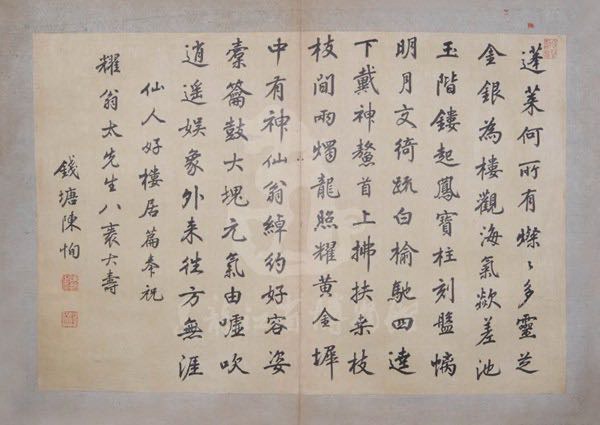 蓬莱何所有㷫〻多靈芝
金銀為樓觀海氣欻差池
玉階鏤起鳳寳柱刻盤螭
明月文綺疏白榆馳四逵
下戴神鰲首上拂扶桒枝
枝間兩燭龍照耀黄金墀
中有神仙翁綽約好容姿
橐籥鼓大塊元氣由噓吹
逍遥娱象外来往方無涯
仙人好樓居篇奉祝
耀翁太先生八袠大壽
錢塘陳恂